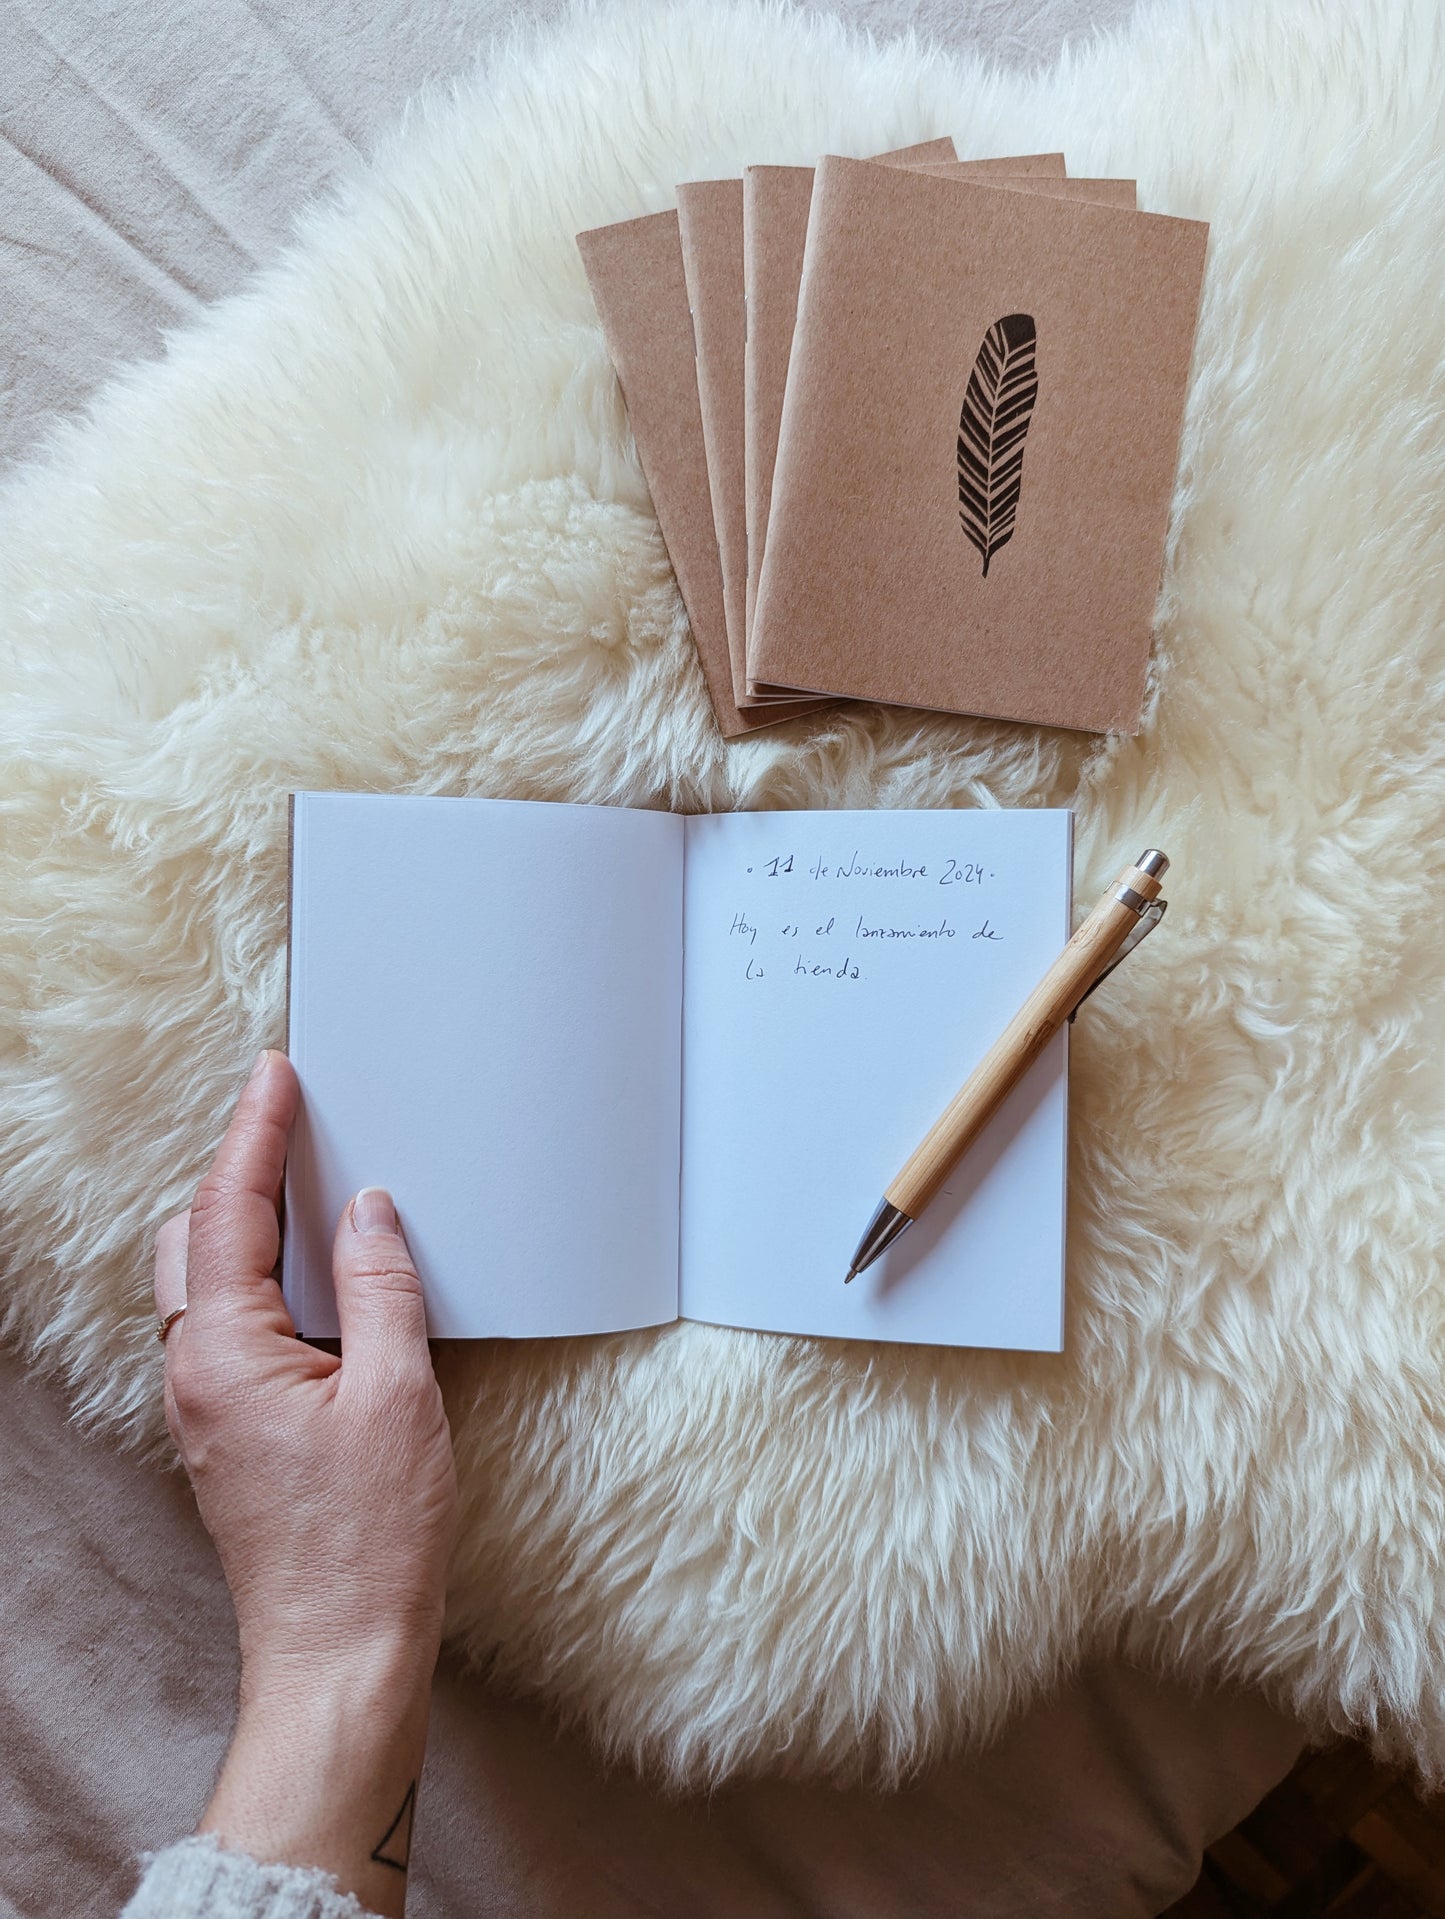 · 11 de Noviembre 2024 ·
Hoy es el lanzamiento de
la tienda.